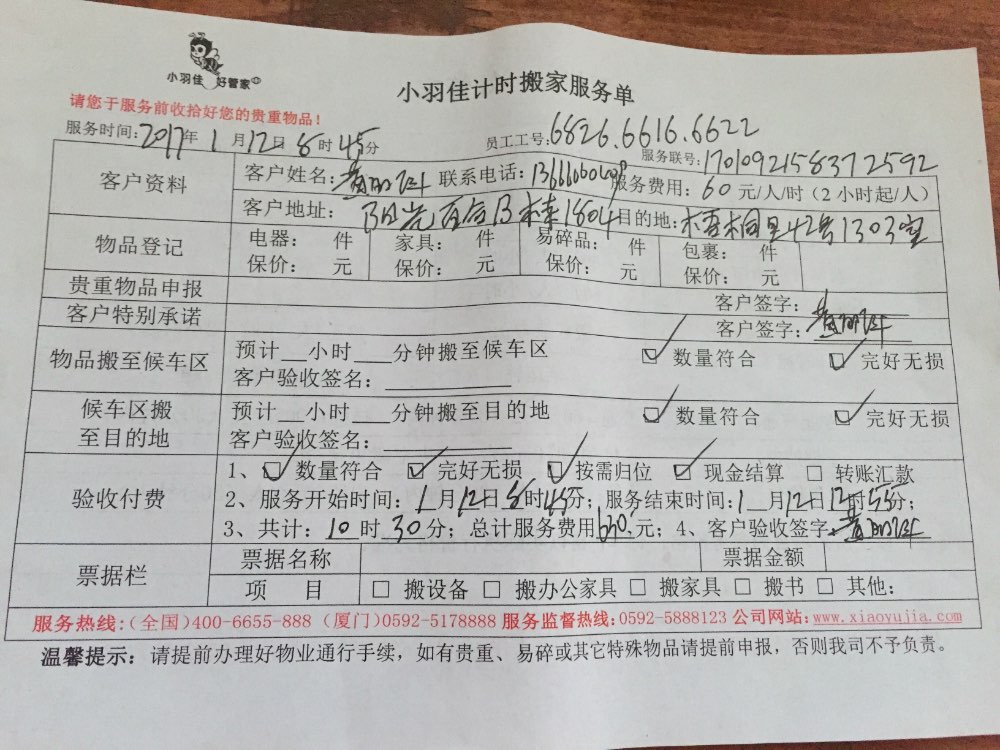 小羽佳 好管家
小羽佳计时搬家服务单
请您于服务前收拾好您的贵重物品！
服务时间：2017年 1月12日 8时45分 员工工号：6826.6616.6622
服务联号：1701092158372592
客户资料 客户姓名： 联系电话： 服务费用：60元/人/时（2小时起/人）
客户地址：阳光百合B栋1804 目的地：梧桐里42号1303室
物品登记 电器： 件 家具： 件 易碎品： 件 包裹： 件
保价： 元 保价： 元 保价： 元 保价： 元
贵重物品申报 客户签字：
客户特别承诺 客户签字：
物品搬至候车区 预计__小时___分钟搬至候车区 ☑ 数量符合 ☑ 完好无损
客户验收签名：
候车区搬至目的地 预计__小时___分钟搬至目的地 ☑ 数量符合 ☑ 完好无损
客户验收签名：
验收付费 1、☑ 数量符合 ☑ 完好无损 ☑ 按需归位 ☑ 现金结算 □ 转账汇款
2、服务开始时间：1月12日8时45分；服务结束时间：1月12日12时55分；
3、共计：10时30分；总计服务费用630元；4、客户验收签字：
票据栏 票据名称 票据金额
项 目 □ 搬设备 □ 搬办公家具 □ 搬家具 □ 搬书 □ 其他：
服务热线：（全国）400-6655-888（厦门）0592-5178888 服务监督热线：0592-5888123 公司网站：www.xiaoyujia.com
温馨提示：请提前办理好物业通行手续，如有贵重、易碎或其它特殊物品请提前申报，否则我司不予负责。